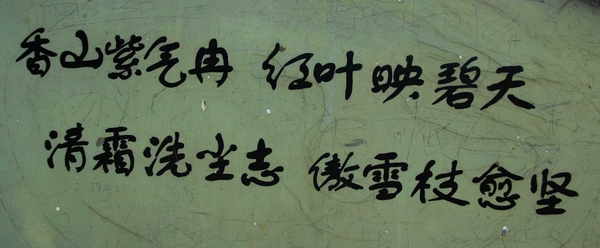 香山紫气冉 红叶映碧天
清霜洗尘志 傲雪枝愈坚